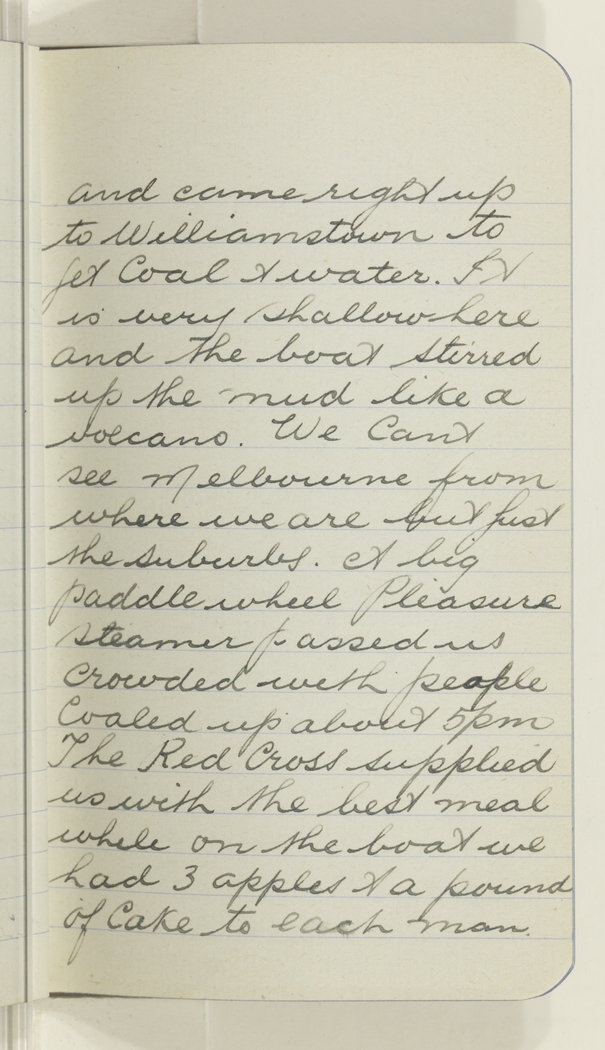 and came right up
to Williamstown to
get Coal & water. It
is very shallow here
and the boat stirred
up the mud like a
volcano. We Cant
see Melbourne from
where we are but just
the suburbs. A big
paddle wheel Pleasure
steamer passed us
crowded with people
Coaled up about 5pm
The Red Cross supplied
us with the best meal
while on the boat we
had 3 apples & a pound
of Cake to each man.